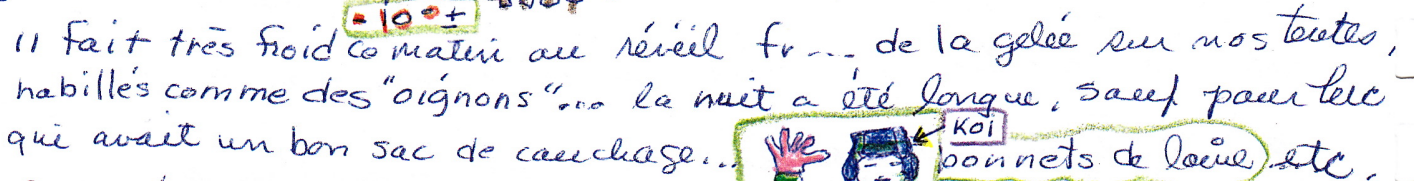 -10°±
il fait très froid ce matin au réveil fr... de la gelée sur nos tentes,
habillés comme des "oignons"... la nuit a été longue, sauf pour Luc
qui avait un bon sac de couchage... KOI bonnets de laine etc.